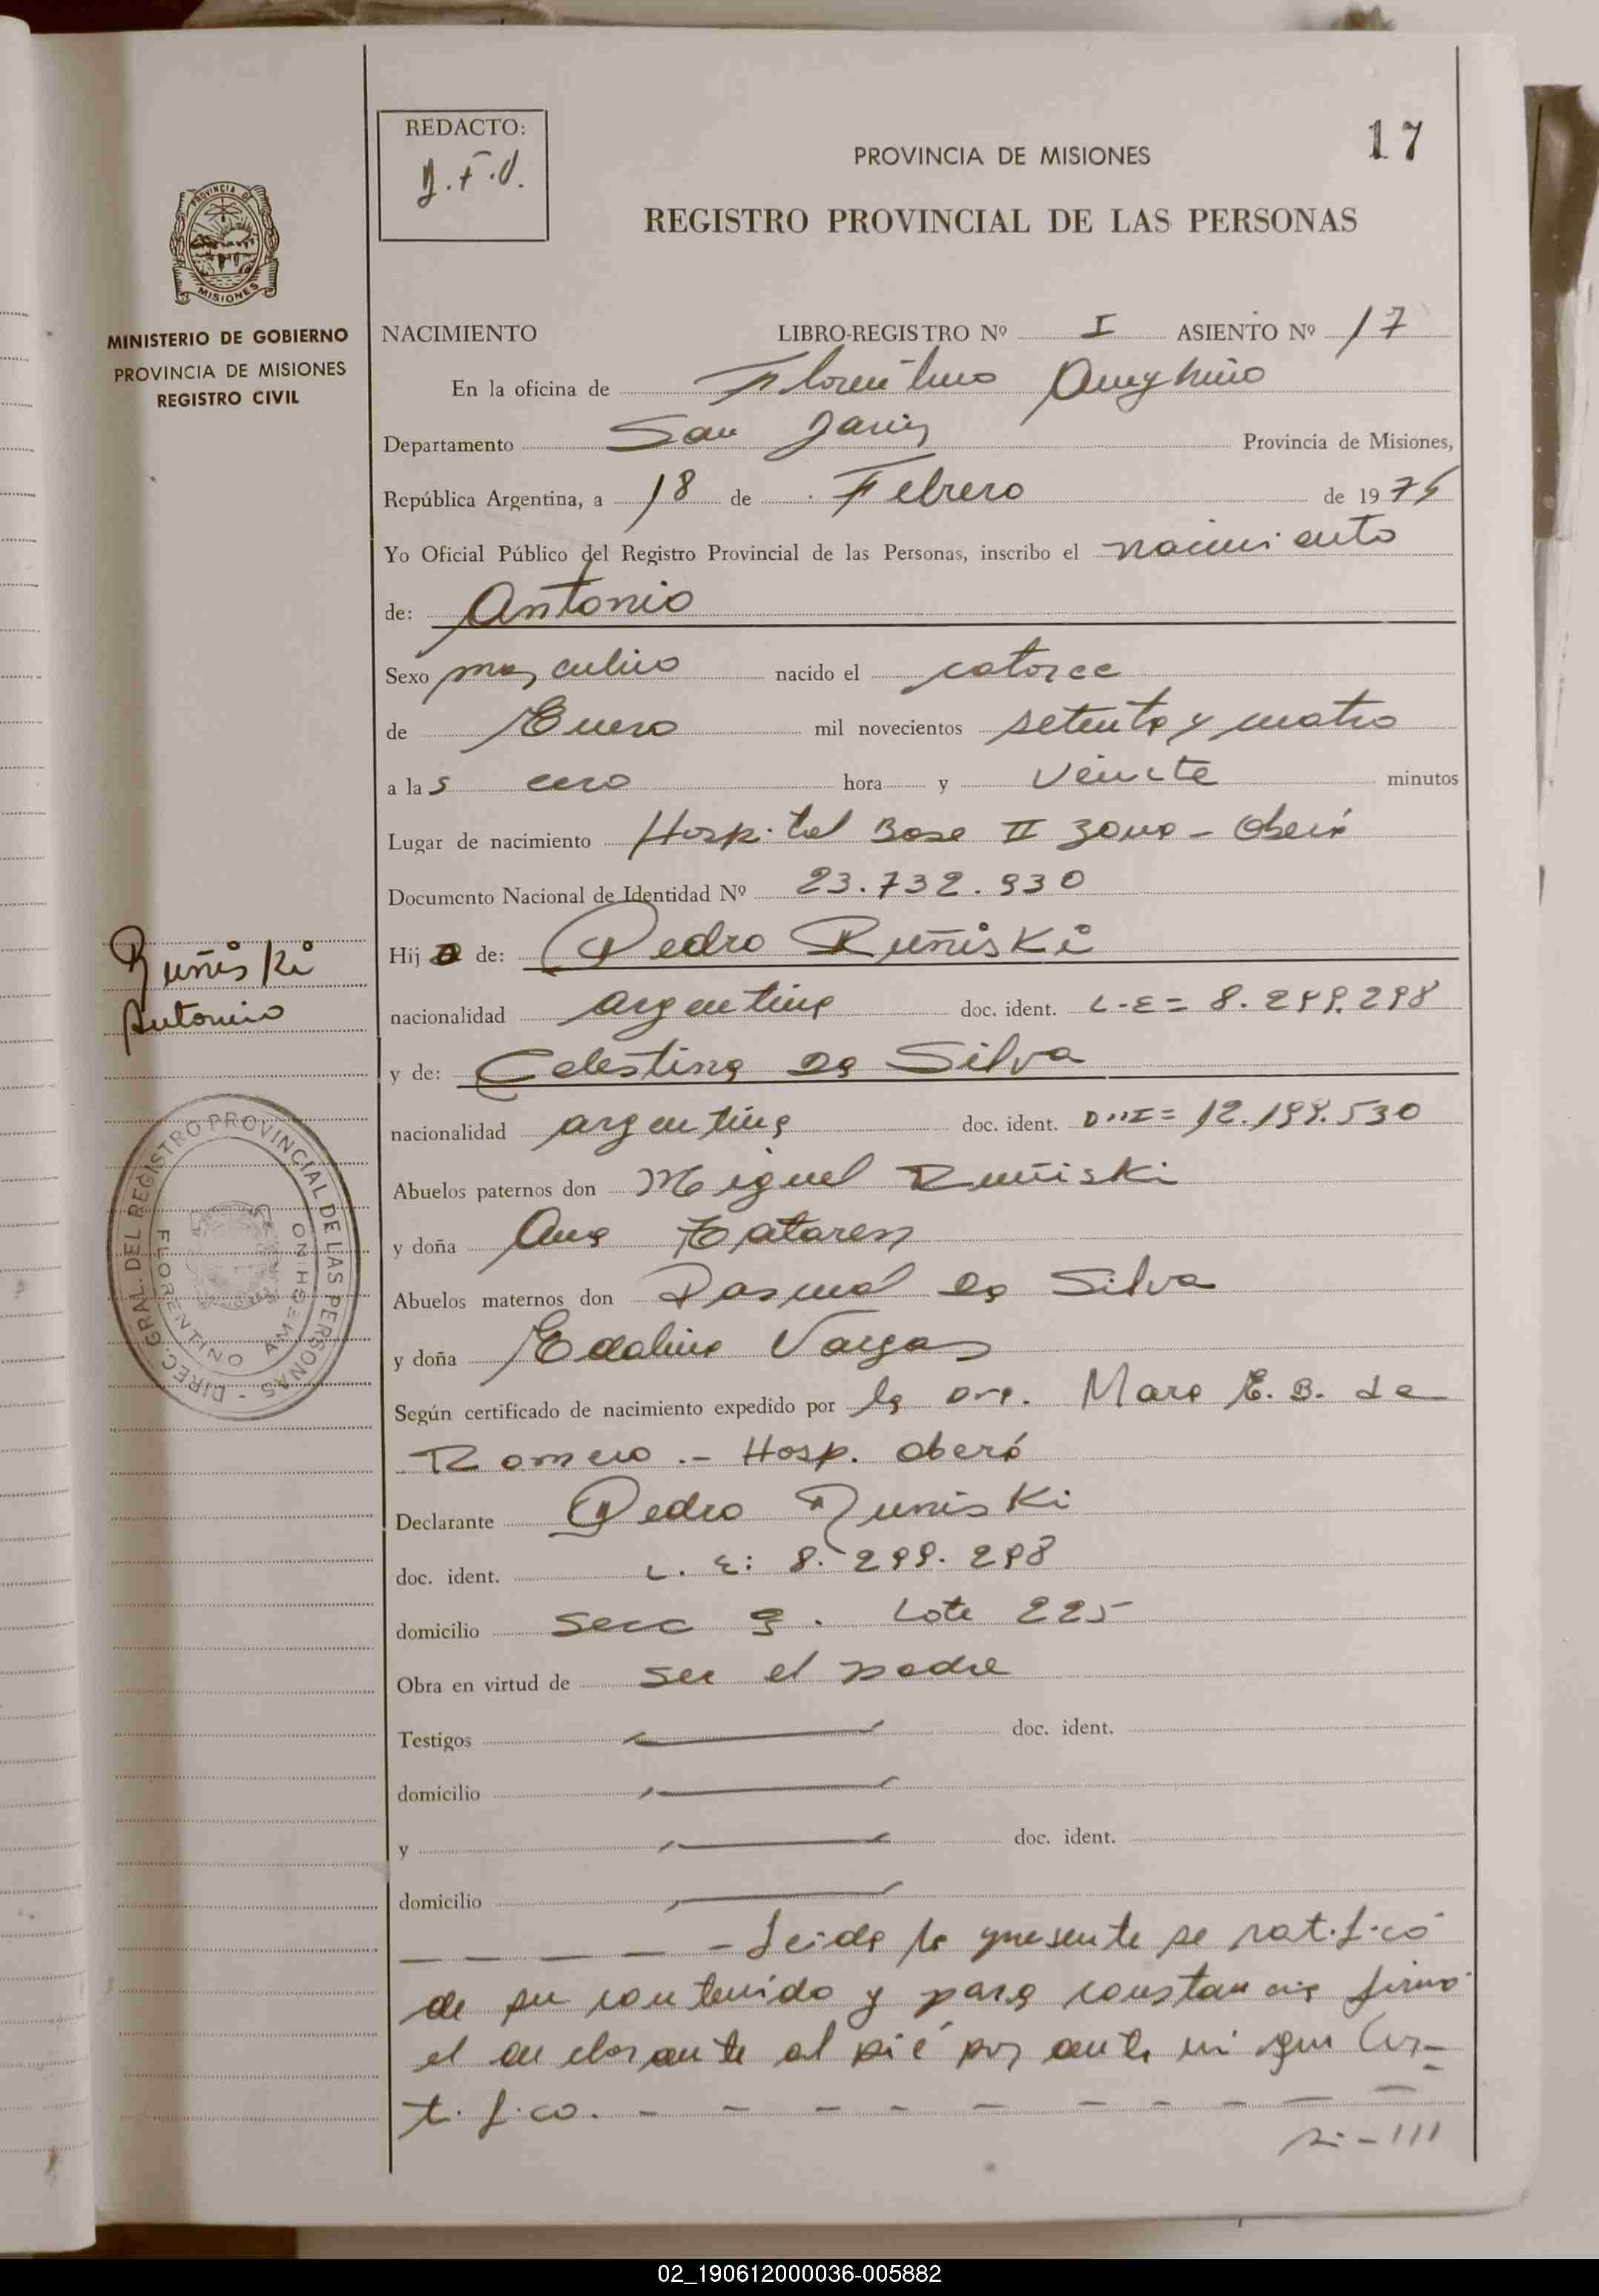 REDACTO:
J.F.V.
PROVINCIA DE MISIONES
17
REGISTRO PROVINCIAL DE LAS PERSONAS
PROVINCIA DE
MISIONES
MINISTERIO DE GOBIERNO
PROVINCIA DE MISIONES
REGISTRO CIVIL
NACIMIENTO LIBRO-REGISTRO Nº I ASIENTO Nº 17
En la oficina de Florentino Ameghino
Departamento San Javier Provincia de Misiones,
República Argentina, a 18 de Febrero de 1975
Yo Oficial Público del Registro Provincial de las Personas, inscribo el nacimiento
de: Antonio
Sexo masculino nacido el catorce
de Enero mil novecientos setenta y cuatro
a las cero hora y veinte minutos
Lugar de nacimiento Hospital Base II zona - Oberá
Documento Nacional de Identidad Nº 23.732.930
Hijo de: Pedro Ruñiski
Ruñiski
Antonio
nacionalidad argentina doc. ident. L-E= 8.299.298
y de: Celestina Da Silva
nacionalidad argentina doc. ident. DNI= 12.198.530
Abuelos paternos don Miguel Ruñiski
y doña Ana
Abuelos maternos don Pascual Da Silva
y doña Edalina Vargas
DIREC. GRAL. DEL REGISTRO PROVINCIAL DE LAS PERSONAS -
FLORENTINO AMEGHINO
Según certificado de nacimiento expedido por la Dra. Mara E. B. de
Romero .- Hosp. Oberá
Declarante Pedro Runiski
doc. ident. L. E: 8.299.298
domicilio Secc 3. Lote 225
Obra en virtud de ser el padre
Testigos doc. ident.
domicilio
y doc. ident.
domicilio
- - - - - Leida la presente se ratificó
de su contenido y para constancia firmó
el declarante al pié por ante mi que Cer-
tifico. - - - - - - - - -
02_190612000036-005882